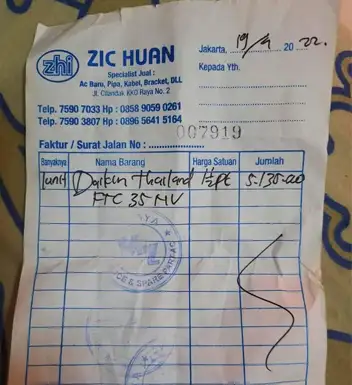 zhi
ZIC HUAN
Specialist Jual :
Ac Baru, Pipa, Kabel, Bracket, DLL
Jl. Cilandak KKO Raya No. 2
Telp. 7590 7033 Hp : 0858 9059 0261
Telp. 7590 3807 Hp : 0896 5641 5164
Jakarta, 19/9 20 22.
Kepada Yth.
007919
Faktur / Surat Jalan No :
Banyaknya Nama Barang Harga Satuan Jumlah
1 unit Daikin Thailand 1½pk 5.135.00
FTC 35 NV
CE & SPARE PART AC